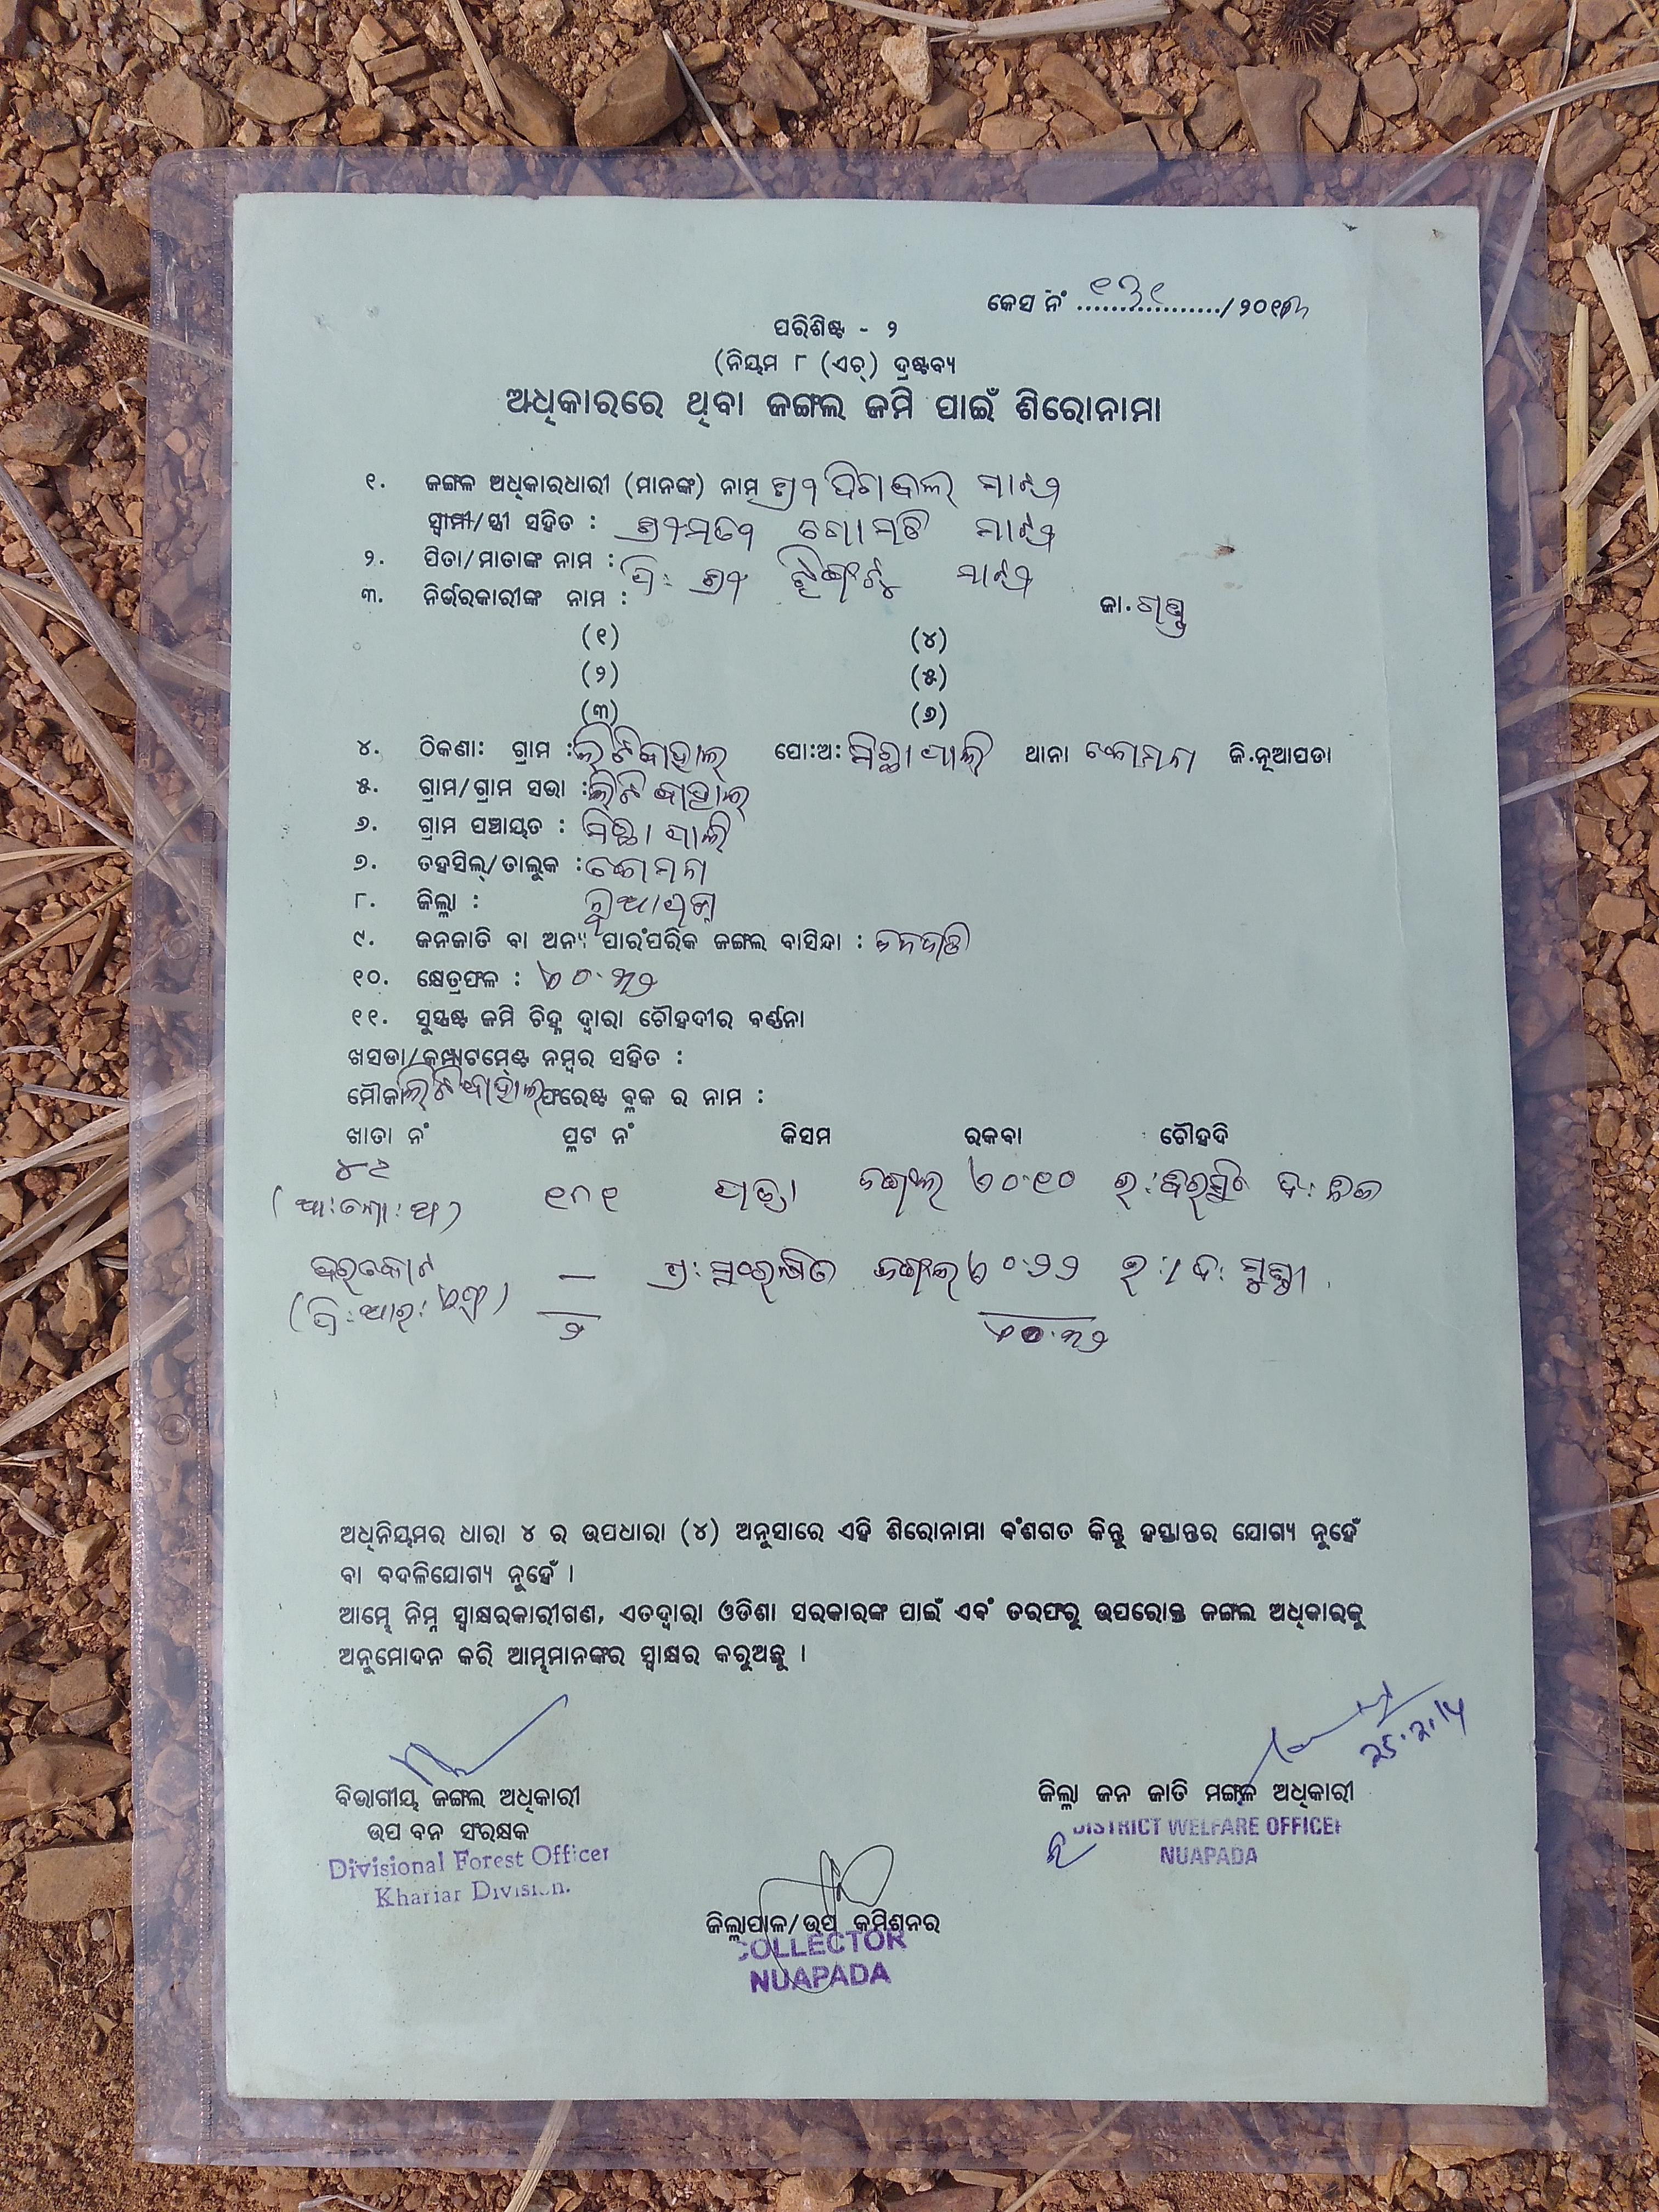 କେସ ନଂ ୧୩୧ /୨୦୧୩
ପରିଶିଷ୍ଟ - ୨
(ନିୟମ ୮ (ଏଚ୍) ଦ୍ରଷ୍ଟବ୍ୟ
ଅଧିକାରରେ ଥିବା ଜଙ୍ଗଲ ଜମି ପାଇଁ ଶିରୋନାମା
୧. ଜଙ୍ଗଳ ଅଧିକାରଧାରୀ (ମାନଙ୍କ) ନାମ ଶ୍ରୀ ମାଝୀ
ସ୍ୱାମୀ/ସ୍ତ୍ରୀ ସହିତ : ଶ୍ରୀମତୀ ଗୋମତି ମାଝୀ
୨. ପିତା/ମାତାଙ୍କ ନାମ : ପି: ଶ୍ରୀ ମାଝୀ
୩. ନିର୍ଭରକାରୀଙ୍କ ନାମ : ଜା. ଗଣ୍ଡ
(୧) (୪)
(୨) (୫)
(୩) (୬)
୪. ଠିକଣା: ଗ୍ରାମ : ଲିଟିବାହାଲ୍ ପୋ:ଅ: ସିଚ୍ଛାପାଲି ଥାନା କୋମନା ଜି.ନୂଆପଡା
୫. ଗ୍ରାମ/ଗ୍ରାମ ସଭା : ଲିଟିବାହାଲ୍
୬. ଗ୍ରାମ ପଞ୍ଚାୟତ : ସିଚ୍ଛାପାଲି
୭. ତହସିଲ୍/ତାଲୁକ : କୋମନା
୮. ଜିଲ୍ଲା : ନୂଆପଡା
୯. ଜନଜାତି ବା ଅନ୍ୟ ପାରଂପରିକ ଜଙ୍ଗଲ ବାସିନ୍ଦା : ଜନଜାତି
୧୦. କ୍ଷେତ୍ରଫଳ : ଏ୦.୩୨
୧୧. ସୁସ୍ପଷ୍ଟ ଜମି ଚିହ୍ନ ଦ୍ୱାରା ଚୌହଦୀର ବର୍ଣ୍ଣନା
ଖସଡା/କମ୍ପାଟମେଣ୍ଟ ନମ୍ବର ସହିତ :
ମୌଜା ଲିଟିବାହାଲ୍ ଫରେଷ୍ଟ ବ୍ଲକ ର ନାମ :
ଖାତା ନଂ ପ୍ଲଟ ନଂ କିସମ ରକବା ଚୌହଦି
୪୯ ୧୮୧ ଜଙ୍ଗଲ ଏ୦.୧୦ ଉ: ଦ:
– ପ୍ର: ସଂରକ୍ଷିତ ଜଙ୍ଗଲ ଏ୦.୨୨ ଉ:/ଦ:
୨ ଏ୦.୩୨
ଅଧିନିୟମର ଧାରା ୪ ର ଉପଧାରା (୪) ଅନୁସାରେ ଏହି ଶିରୋନାମା ବଂଶଗତ କିନ୍ତୁ ହସ୍ତାନ୍ତର ଯୋଗ୍ୟ ନୁହେଁ
ବା ବଦଳିଯୋଗ୍ୟ ନୁହେଁ ।
ଆମ୍ଭେ ନିମ୍ନ ସ୍ୱାକ୍ଷରକାରୀଗଣ, ଏତଦ୍ୱାରା ଓଡିଶା ସରକାରଙ୍କ ପାଇଁ ଏବଂ ତରଫରୁ ଉପରୋକ୍ତ ଜଙ୍ଗଲ ଅଧିକାରକୁ
ଅନୁମୋଦନ କରି ଆମ୍ଭମାନଙ୍କର ସ୍ୱାକ୍ଷର କରୁଅଛୁ ।
25.2.14
ବିଭାଗୀୟ ଜଙ୍ଗଲ ଅଧିକାରୀ
ଉପ ବନ ସଂରକ୍ଷକ
Divisional Forest Officer
Khariar Division.
ଜିଲ୍ଲା ଜନ ଜାତି ମଙ୍ଗଳ ଅଧିକାରୀ
DISTRICT WELFARE OFFICER
NUAPADA
ଜିଲ୍ଲାପାଳ/ଉପ କମିଶନର
COLLECTOR
NUAPADA